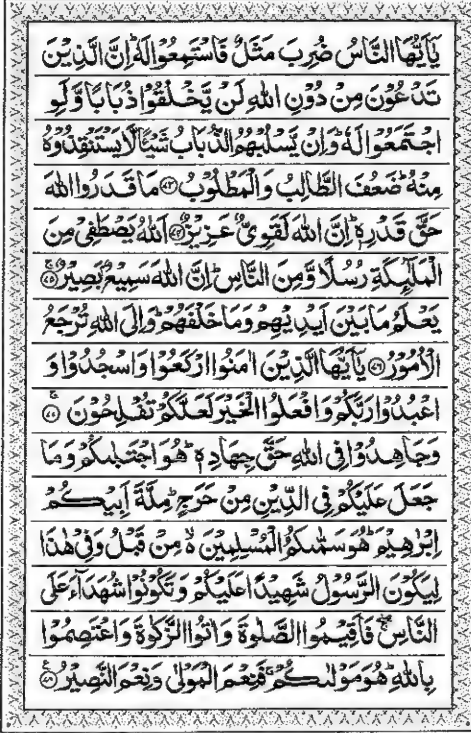 يٰۤاَيُّهَا النَّاسُ ضُرِبَ مَثَلٌ فَاسْتَمِعُوْا لَهٗ ؕ اِنَّ الَّذِيْنَ
تَدْعُوْنَ مِنْ دُوْنِ اللّٰهِ لَنْ يَّخْلُقُوْا ذُبَابًا وَّ لَوِ
اجْتَمَعُوْا لَهٗ ؕ وَ اِنْ يَّسْلُبْهُمُ الذُّبَابُ شَيْـًٔا لَّا يَسْتَنْقِذُوْهُ
مِنْهُ ؕ ضَعُفَ الطَّالِبُ وَ الْمَطْلُوْبُ ﴿۷۳﴾ مَا قَدَرُوا اللّٰهَ
حَقَّ قَدْرِهٖ ؕ اِنَّ اللّٰهَ لَقَوِىٌّ عَزِيْزٌ ﴿۷۴﴾ اَللّٰهُ يَصْطَفِىْ مِنَ
الْمَلٰٓئِكَةِ رُسُلًا وَّ مِنَ النَّاسِ ؕ اِنَّ اللّٰهَ سَمِيْعٌۢ بَصِيْرٌ ﴿۷۵﴾ ۚ
يَعْلَمُ مَا بَيْنَ اَيْدِيْهِمْ وَ مَا خَلْفَهُمْ ؕ وَ اِلَى اللّٰهِ تُرْجَعُ
الْاُمُوْرُ ﴿۷۶﴾ يٰۤاَيُّهَا الَّذِيْنَ اٰمَنُوا ارْكَعُوْا وَ اسْجُدُوْا وَ
اعْبُدُوْا رَبَّكُمْ وَ افْعَلُوا الْخَيْرَ لَعَلَّكُمْ تُفْلِحُوْنَ ﴿۷۷﴾ ۚ
وَ جَاهِدُوْا فِى اللّٰهِ حَقَّ جِهَادِهٖ ؕ هُوَ اجْتَبٰىكُمْ وَ مَا
جَعَلَ عَلَيْكُمْ فِى الدِّيْنِ مِنْ حَرَجٍ ؕ مِلَّةَ اَبِيْكُمْ
اِبْرٰهِيْمَ ؕ هُوَ سَمّٰىكُمُ الْمُسْلِمِيْنَ ۙ۬ مِنْ قَبْلُ وَ فِىْ هٰذَا
لِيَكُوْنَ الرَّسُوْلُ شَهِيْدًا عَلَيْكُمْ وَ تَكُوْنُوْا شُهَدَآءَ عَلَى
النَّاسِ ۖۚ فَاَقِيْمُوا الصَّلٰوةَ وَ اٰتُوا الزَّكٰوةَ وَ اعْتَصِمُوْا
بِاللّٰهِ ؕ هُوَ مَوْلٰىكُمْ ۚ فَنِعْمَ الْمَوْلٰى وَ نِعْمَ النَّصِيْرُ ﴿۷۸﴾